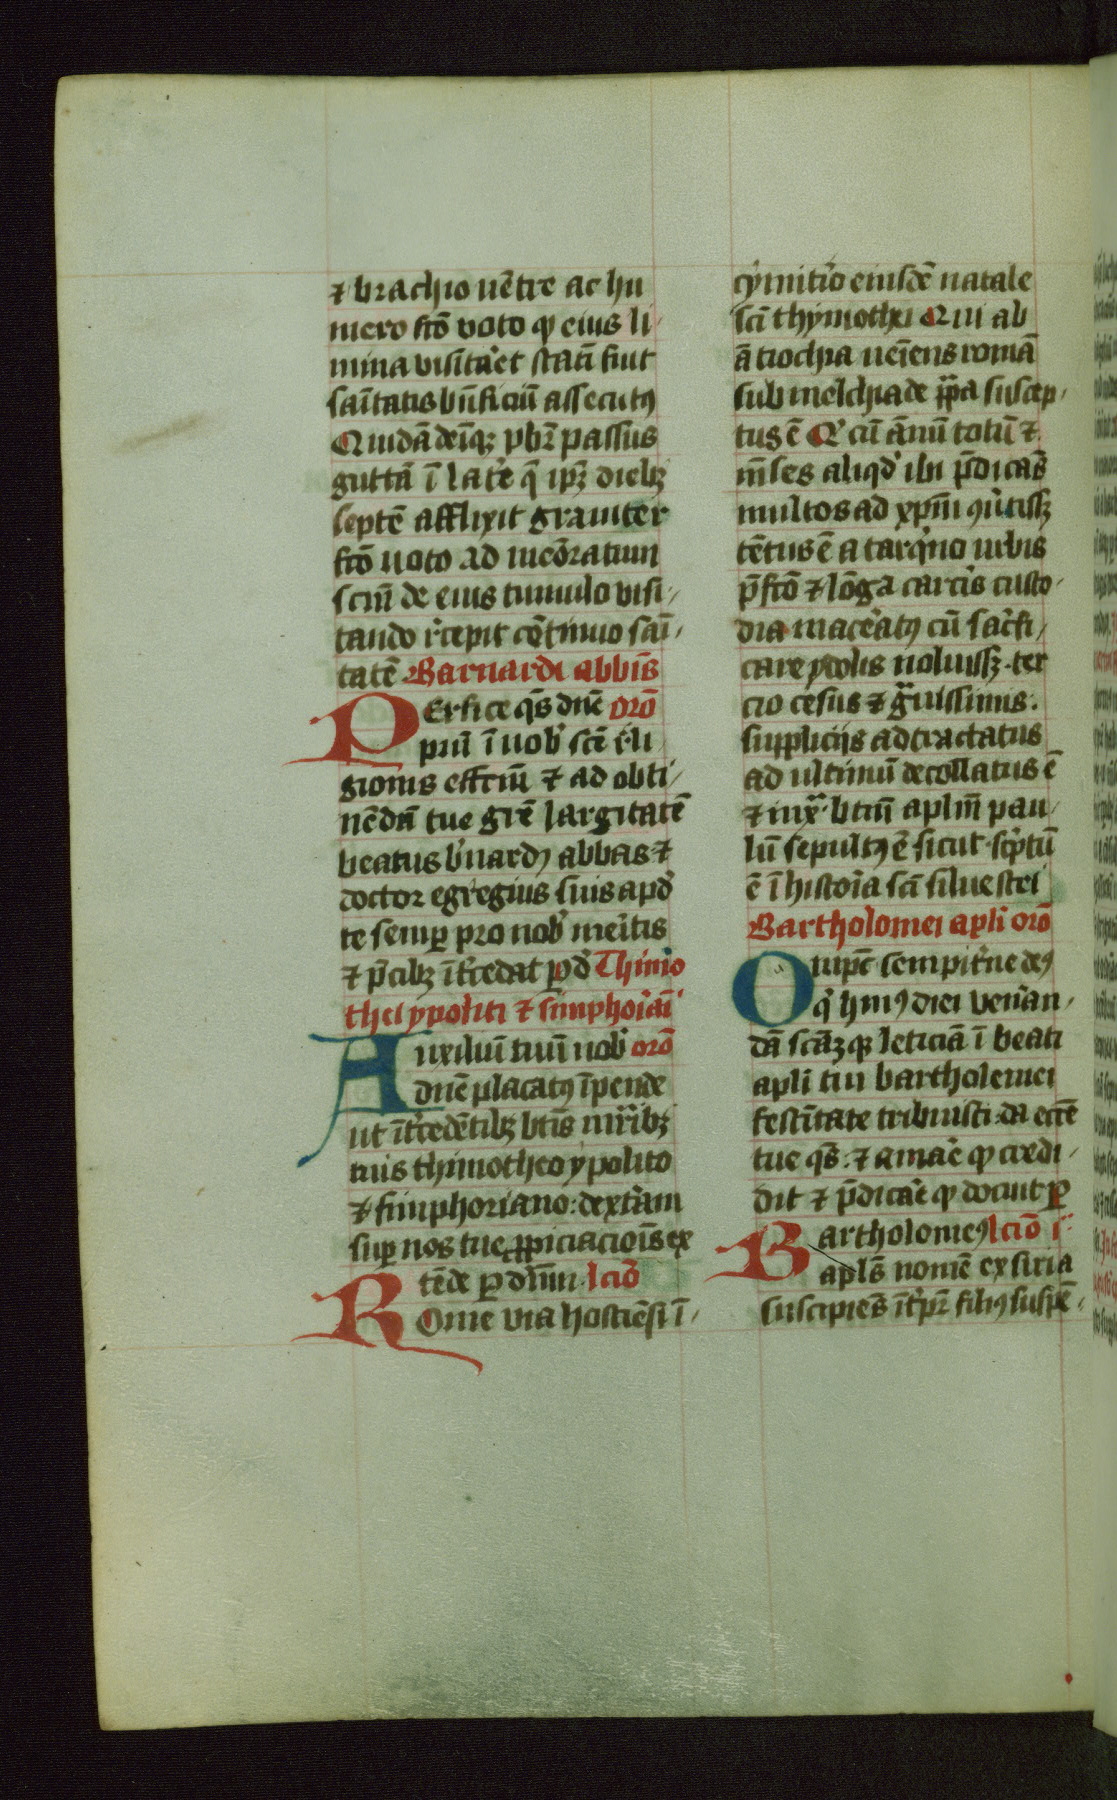 ⁊ brachio uētre ac hu
mero fcō voto qͥ eius li
mina visitaret statī fiut
saītatis bn̄ficiū assecutꝰ
Quidā deīqꝫ pb̄r passus
guttā ī latͤe q̄ ip̄ꝫ diebꝫ
septē afflixit grauiter
fcō uoto ad meōratum
scm̄ de eius tumulo visi
tando rͨcepit cōtinuo saī
tatē Barnardi abbīs
PErfice qs̄ dn̄e orō
piū ī uobͥ scē rͨli
gionis effcm̄ ⁊ ad obti
nēdā tue grē largitatē
beatus bͨnardꝰ abbas ⁊
doctor egregius suis apd̛
te semꝑ pro nobͥ meritis
⁊ p̄cibꝫ ītͨcedat ꝑ d̄ Thimo
thei ypoliti ⁊ simphoriāi
Auxiliuī tuuī nobͥ orō
dn̄e placatꝰ īpende
ut ītͨcedētibꝫ btīs mr̄ibꝫ
tuis thimotheo ypolito
⁊ simphoriano: dextͣam
suꝑ nos tue ꝓpiciacioīs ex
tēde ꝑ dn̄m lciō
Rome via hostiēsi ī
cymitͥio eiusdē natale
scī thymothei Qui ab
ātiochia ueīens romā
sub melchiade pͣpa suscep
tus ē Qͥ cū ānū totū ⁊
mēses aliqͥd ibi p̄dicās
multos ad xp̄m ꝯuͨtissꝫ
tētus ē a tarqͥno urbis
p̄fcō ⁊ lōga carcͨis custo
dia maceratꝰ cū sacͥfi
care ydolis noluissꝫ ter
cio cesus ⁊ gͣuissimis
suppliciis adtractatus
ad ultimū decollatus ē
⁊ iuxͣ btm̄ aplm̄ pau
lū sepultꝰ ē sicut scͥptū
ē ī historia scī siluestri
Bartholomei apli orō
Omp̄c sempitͨne deꝰ
qͥ huiꝰ diei veneran
dā scāꝫqꝫ leticiā ī beati
apli tui bartholemei
festītate tribuisti da eccē
tue qs̄ ⁊ amare qͥ credi
dit ⁊ p̄dicare qͥ docuit ꝑ
Bartholomeꝰ lciō i
apls̄ nomē ex siria
suscipiēs ītͨpr̄ filiꝰ suspē